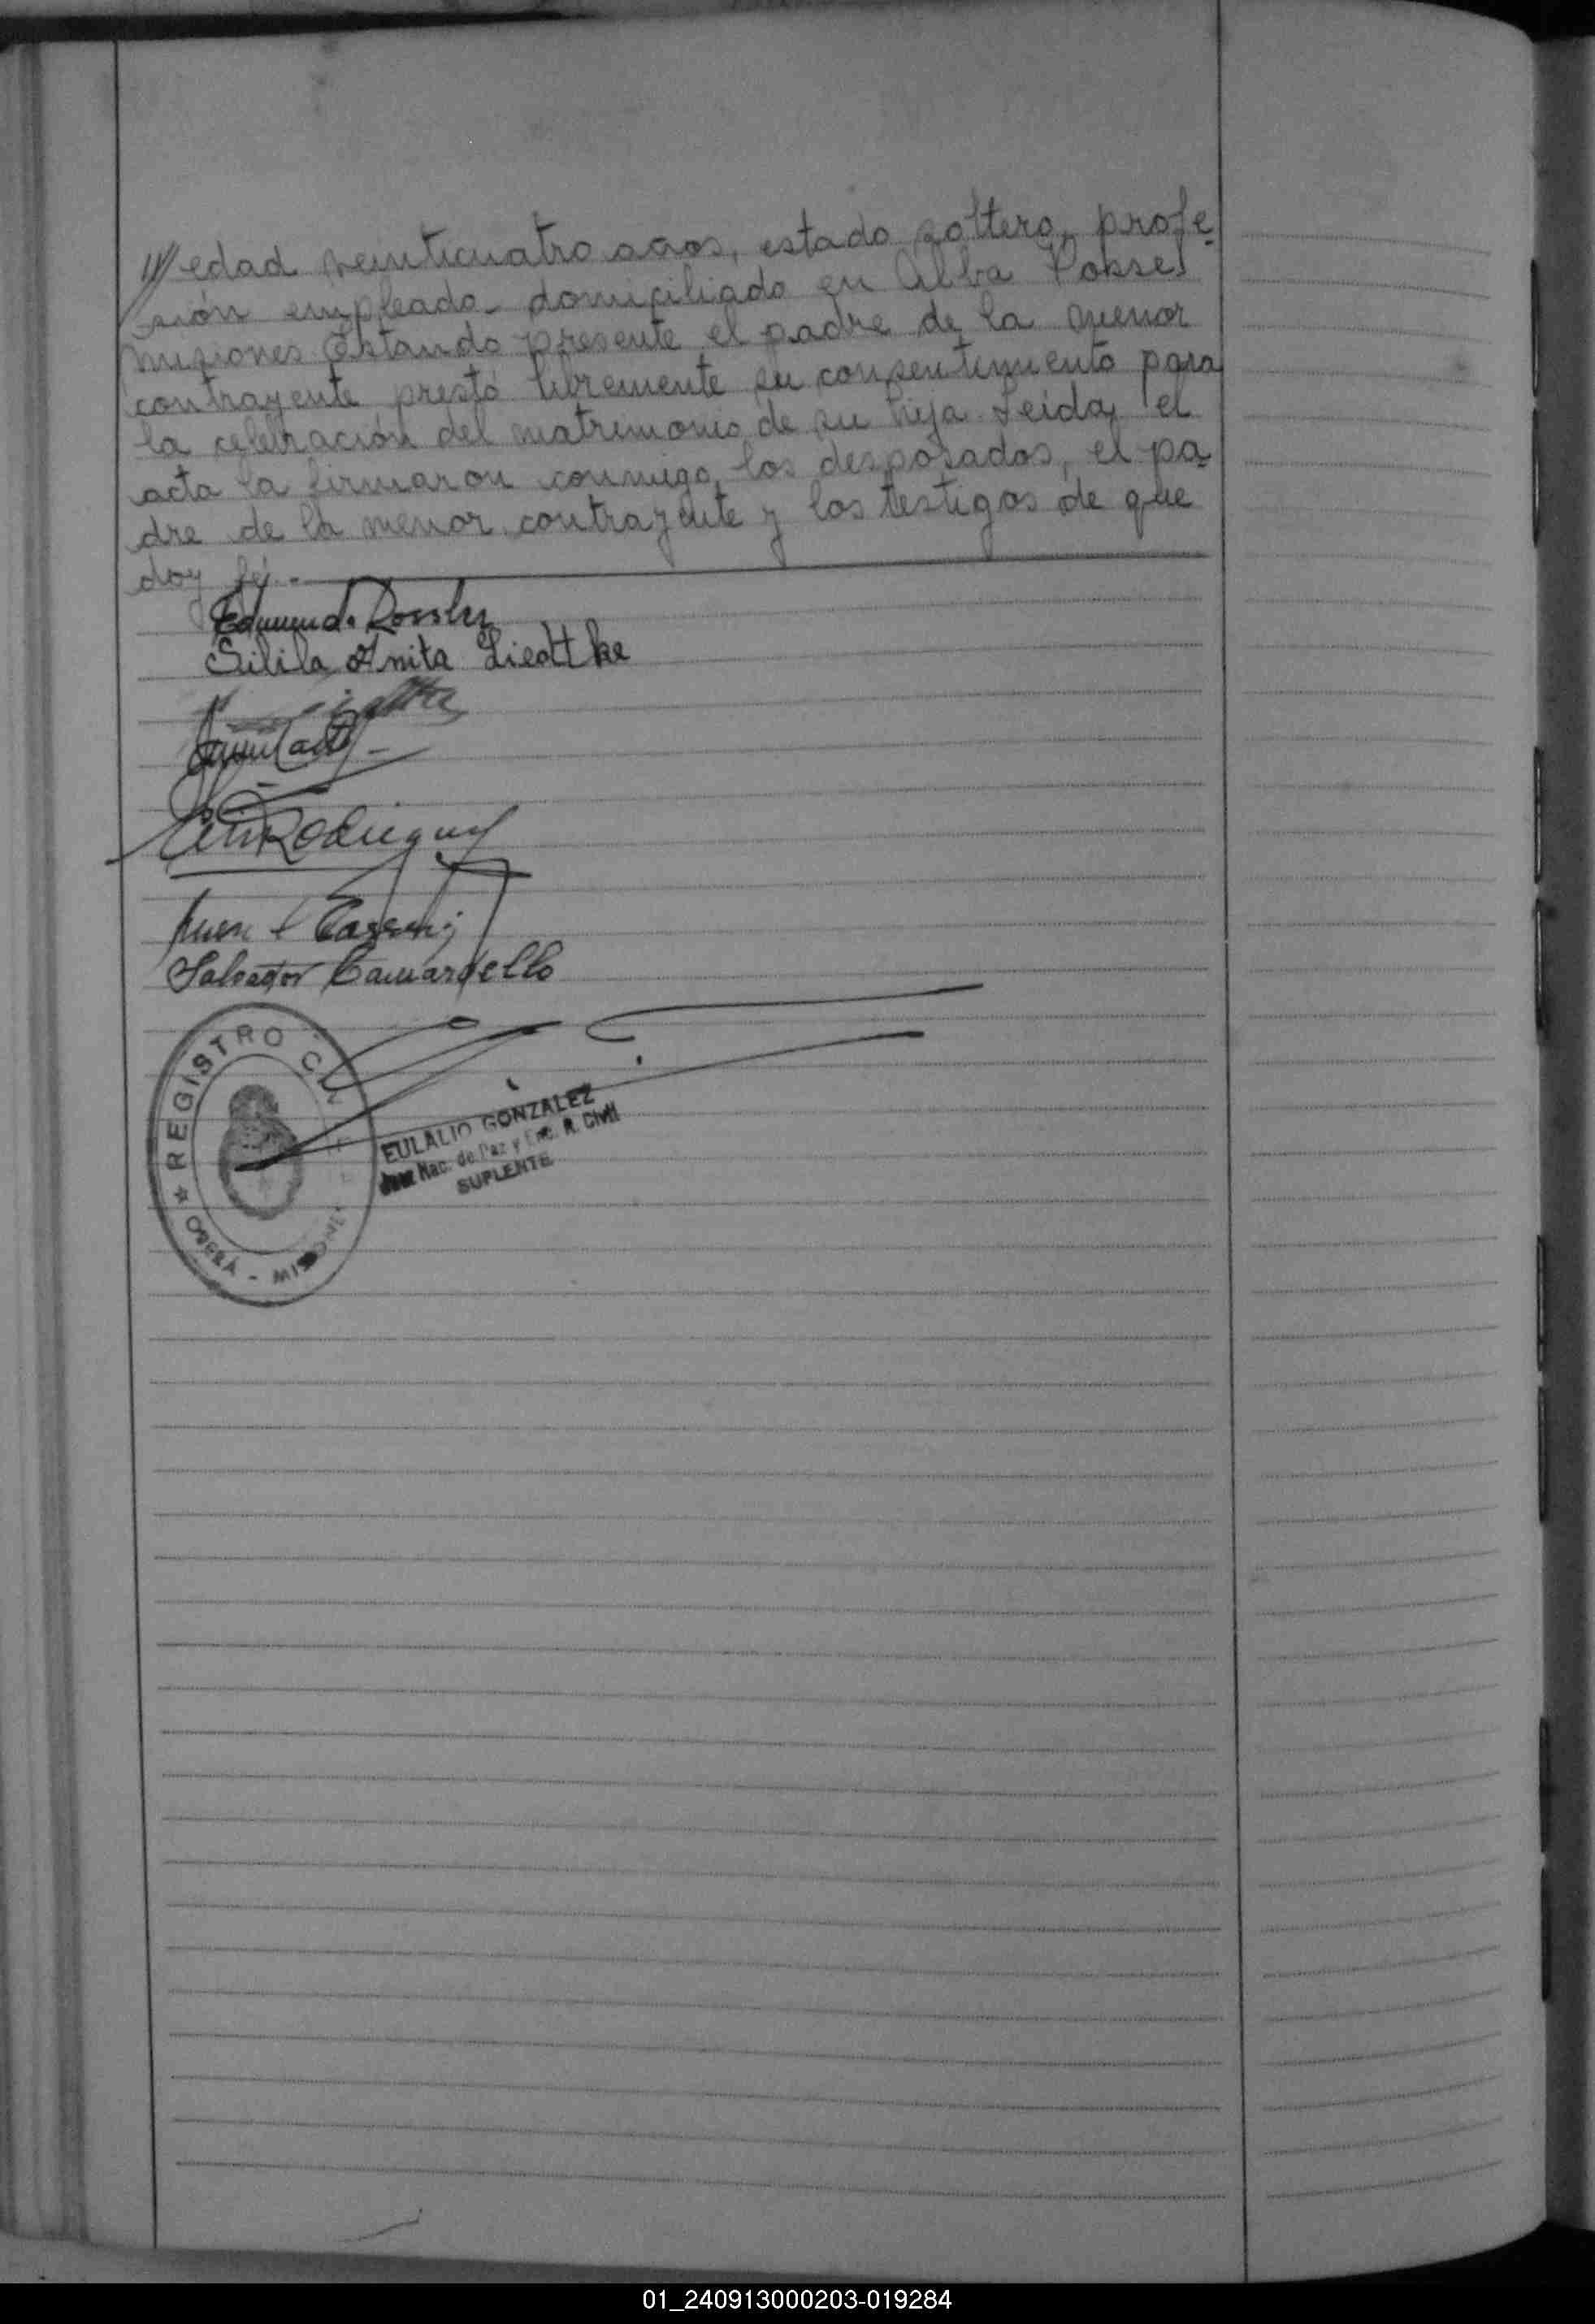 /// edad veinticuatro años, estado soltero, profe-
sión empleado domiciliado en Alba Posse
Misiones Estando presente el padre de la menor
contrayente prestó libremente su consentimiento para
la celebración del matrimonio de su hija. Leida el
acta la firmaron conmigo, los desposados, el pa-
dre de la menor contrayente y los testigos de que
doy fé.-
Edmundo Rossler
Silila Anita Liedtke
Rodriguez
Juan
Salvador Camardello
REGISTRO CIVIL
OBERÁ - MISIONES
EULALIO GONZALEZ
Juez Nac. de Paz y Enc. R. Civil
SUPLENTE
01_240913000203-019284